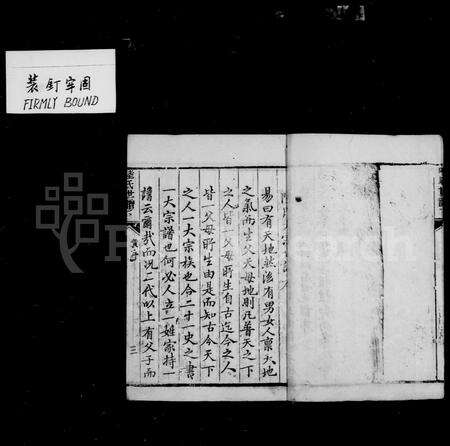 裝釘牢固
FIRMLY BOUND
易曰有天地然後有男女人稟天地
之氣而生父天母地則凡普天之下
之人皆一父母所生自古迄今之人
皆一父母所生由是而知古今天下
之人一大宗族也合二十一史之書
一大宗譜也何必人立一姓家持一
譜云爾哉而況二代以上有父子而
氏世譜
三
Research